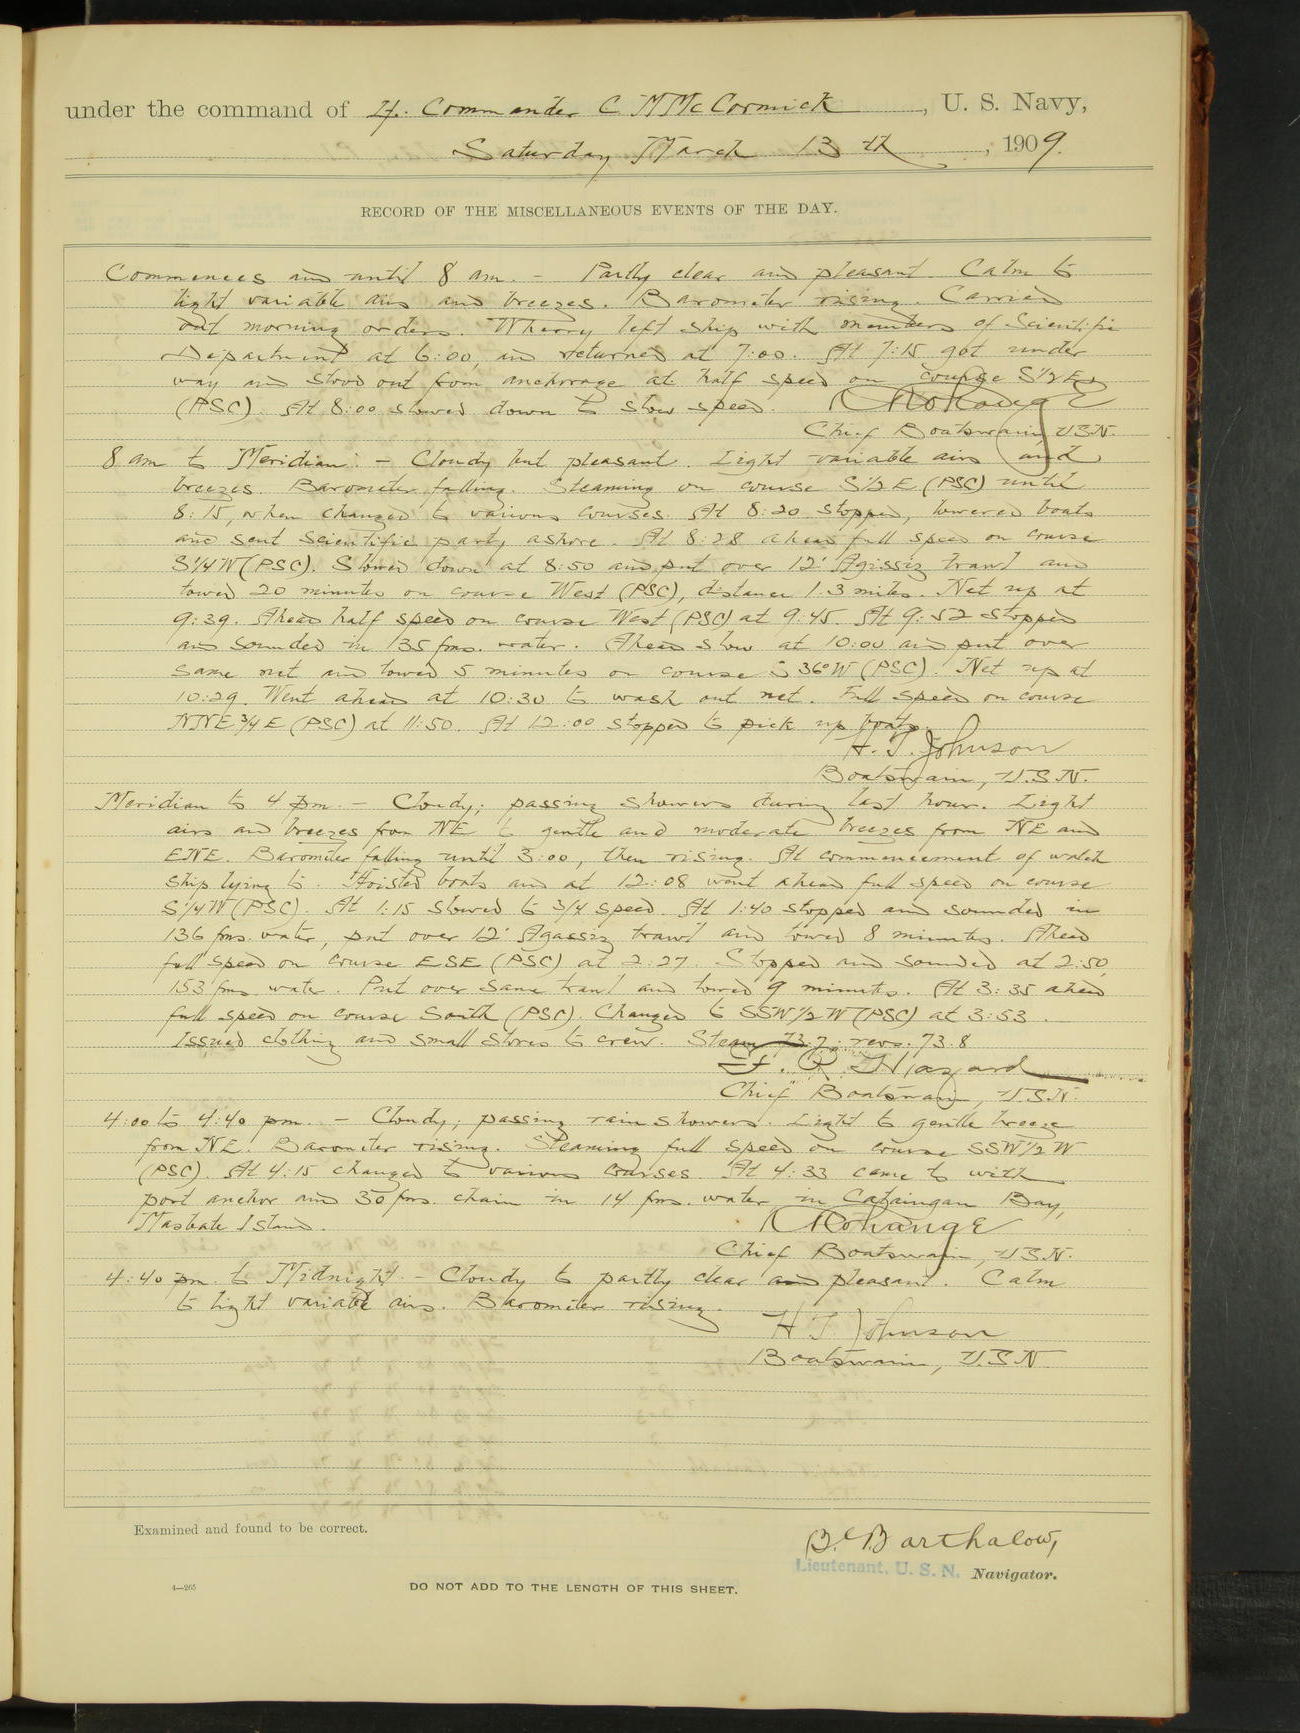 under the command of Lt. Commander C M McCormick, U. S. Navy,
Saturday March 13th, 1909.
RECORD OF THE MISCELLANEOUS EVENTS OF THE DAY.
Commences and until 8 am. - Partly clear and pleasant. Calm to
light variable airs and breezes. Barometer rising. Carried
out morning orders. Wherry left ship with members of Scientific
Department at 6:00, and returned at 7:00. At 7:15 got under
way and stood out from anchorage at half speed on course S1/2E
(PSC). At 8:00 slowed down to slow speed.
Chief Boatswain, USN.
8 am to Meridian: - Cloudy but pleasant. Light variable airs and
breezes. Barometer falling. Steaming on course S1/2E (PSC) until
8:15, when changed to various courses. At 8:20 stopped, lowered boats
and sent scientific party ashore. At 8:28 ahead full speed on course
S1/4W (PSC). Slowed down at 8:50 and put over 12' Agissiz trawl and
towed 20 minutes on course West (PSC), distance 1.3 miles. Net up at
9:39. Ahead half speed on course West (PSC) at 9:45. At 9:52 stopped
and sounded in 135 fms. water. Ahead slow at 10:00 and put over
same net and towed 5 minutes on course S 36°W (PSC). Net up at
10:29. Went ahead at 10:30 to wash out net. Full speed on course
NNE 3/4 E (PSC) at 11:50. At 12:00 stopped to pick up boats.
H. T. Johnson
Boatswain, U.S.N.
Meridian to 4 pm. - Cloudy; passing showers during last hour. Light
airs and breezes from NE to gentle and moderate breezes from NE and
ENE. Barometer falling until 3:00, then rising. At commencement of watch
ship lying to. Hoisted boats and at 12:08 went ahead full speed on course
S1/4W (PSC). At 1:15 slowed to 3/4 speed. At 1:40 stopped and sounded in
136 fms. water, put over 12' Agassiz trawl and towed 8 minutes. Ahead
full speed on course ESE (PSC) at 2:27. Stopped and sounded at 2:50,
153 fms. water. Put over same trawl and towed 9 minutes. At 3:35 ahead
full speed on course South (PSC). Changed to SSW1/2W (PSC) at 3:53.
Issued clothing and small stores to crew. Steam revs. 73.8
F. R. Hazard
Chief Boatswain, U.S.N.
4:00 to 4:40 pm. - Cloudy; passing rain showers. Light to gentle breeze
from NE. Barometer rising. Steaming full speed on course SSW1/2W
(PSC). At 4:15 changed to various courses. At 4:33 came to with
port anchor and 30 fms. chain in 14 fms. water in Cataingan Bay,
Masbate Island.
Chief Boatswain, U.S.N.
4:40 pm. to Midnight - Cloudy to partly clear and pleasant. Calm
to light variable airs. Barometer rising.
H T Johnson
Boatswain, U.S.N
Examined and found to be correct.
B. Barthalow,
Lieutenant, U. S. N. Navigator.
4—265
DO NOT ADD TO THE LENGTH OF THIS SHEET.